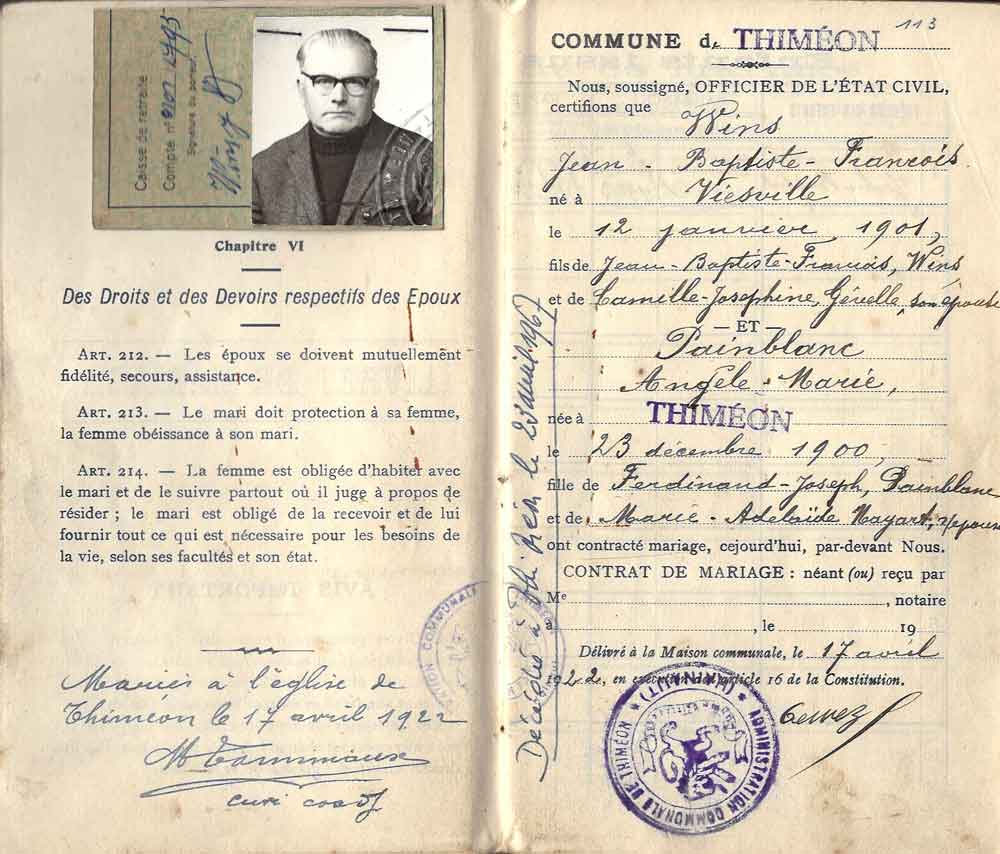 Caisse de retraite
Compte n°
Signature du porteur
Chapitre VI
Des Droits et des Devoirs respectifs des Epoux
ART. 212. — Les époux se doivent mutuellement
fidélité, secours, assistance.
ART. 213. — Le mari doit protection à sa femme,
la femme obéissance à son mari.
ART. 214. — La femme est obligée d'habiter avec
le mari et de le suivre partout où il juge à propos de
résider ; le mari est obligé de la recevoir et de lui
fournir tout ce qui est nécessaire pour les besoins de
la vie, selon ses facultés et son état.
Mariés à l'église de
Thiméon le 17 avril 1922
curé
Décédés à le 23 avril 1967
113
COMMUNE d. THIMÉON
Nous, soussigné, OFFICIER DE L'ÉTAT CIVIL,
certifions que Wins
Jean-Baptiste-François
né à Viesville
le 12 janvier 1901,
fils de Jean-Baptiste-François, Wins
et de Camille-Josephine, son épouse
— ET —
Painblanc
Angèle-Marie,
née à THIMÉON
le 23 décembre 1900,
fille de Ferdinand-Joseph, Painblanc
et de Marie-Adelaïde
ont contracté mariage, cejourd'hui, par-devant Nous.
CONTRAT DE MARIAGE : néant (ou) reçu par
Me , notaire
à , le 19
Délivré à la Maison communale, le 17 avril
1922, en exécution de l'article 16 de la Constitution.
ADMINISTRATION COMMUNALE DE THIMÉON
(HAINAUT)